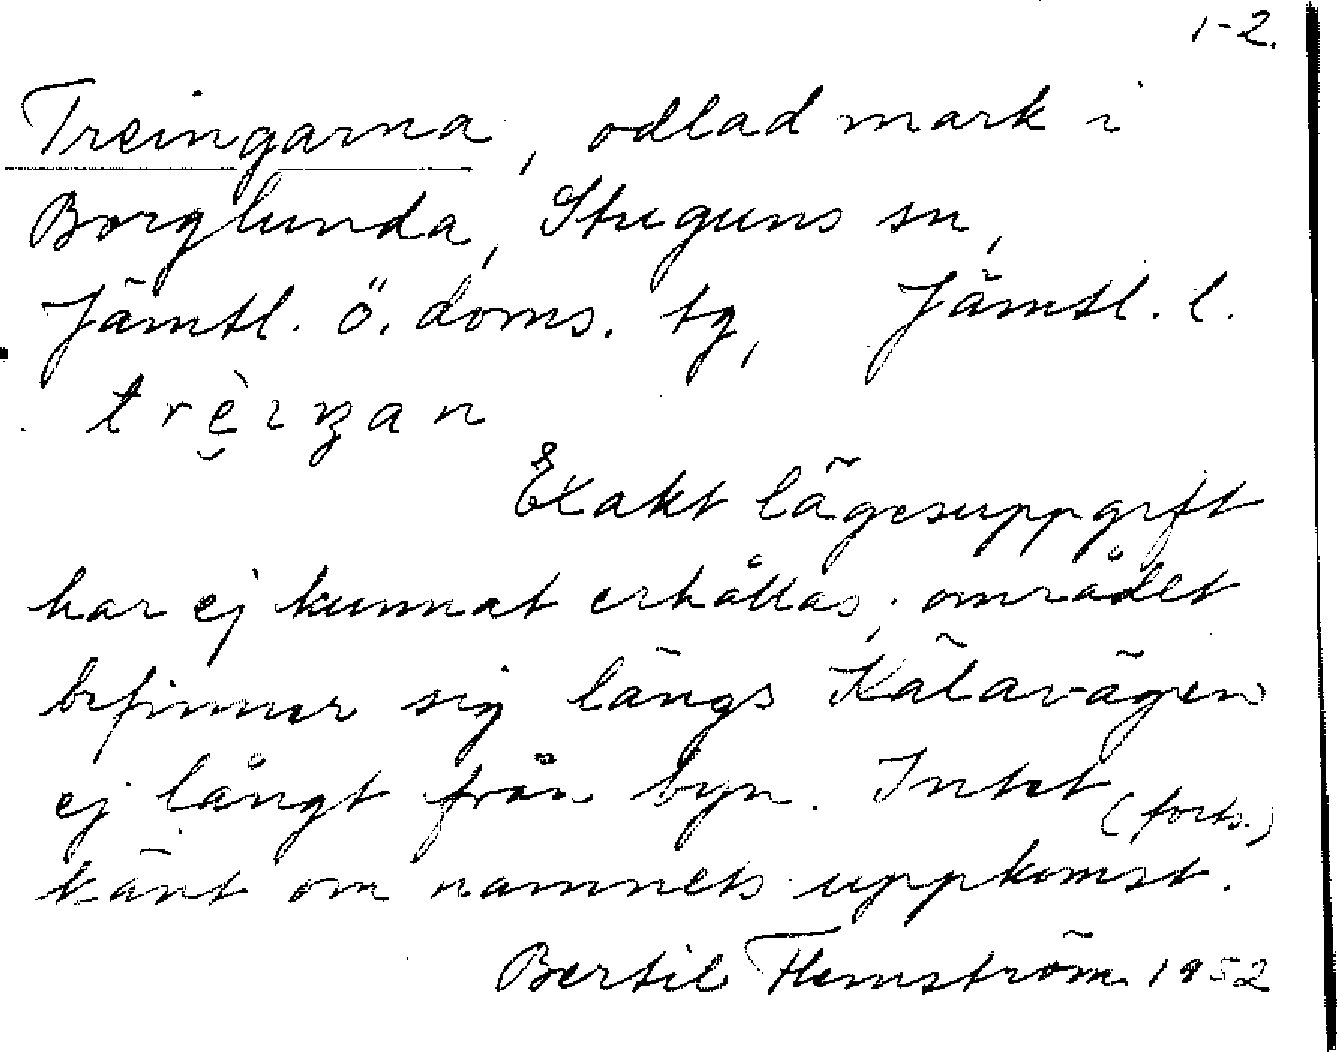 1-2.
Treingarna, odlad mark i
Borglunda, Stuguns sn,
Jämtl. ö. doms. tg, Jämtl. l.
trèi̯ŋan
Exakt lägesuppgift
har ej kunnat erhållas; området
befinner sig längs Kälavägen
ej långt från byn. Intet
(forts.)
känt om namnets uppkomst.
Bertil Flemström 1952